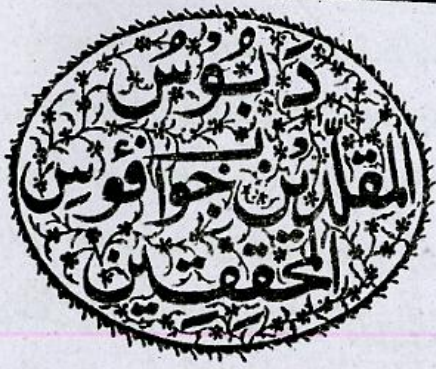 دَبُّوْسُ
المقلّدین جواب فؤسِ
المحققین